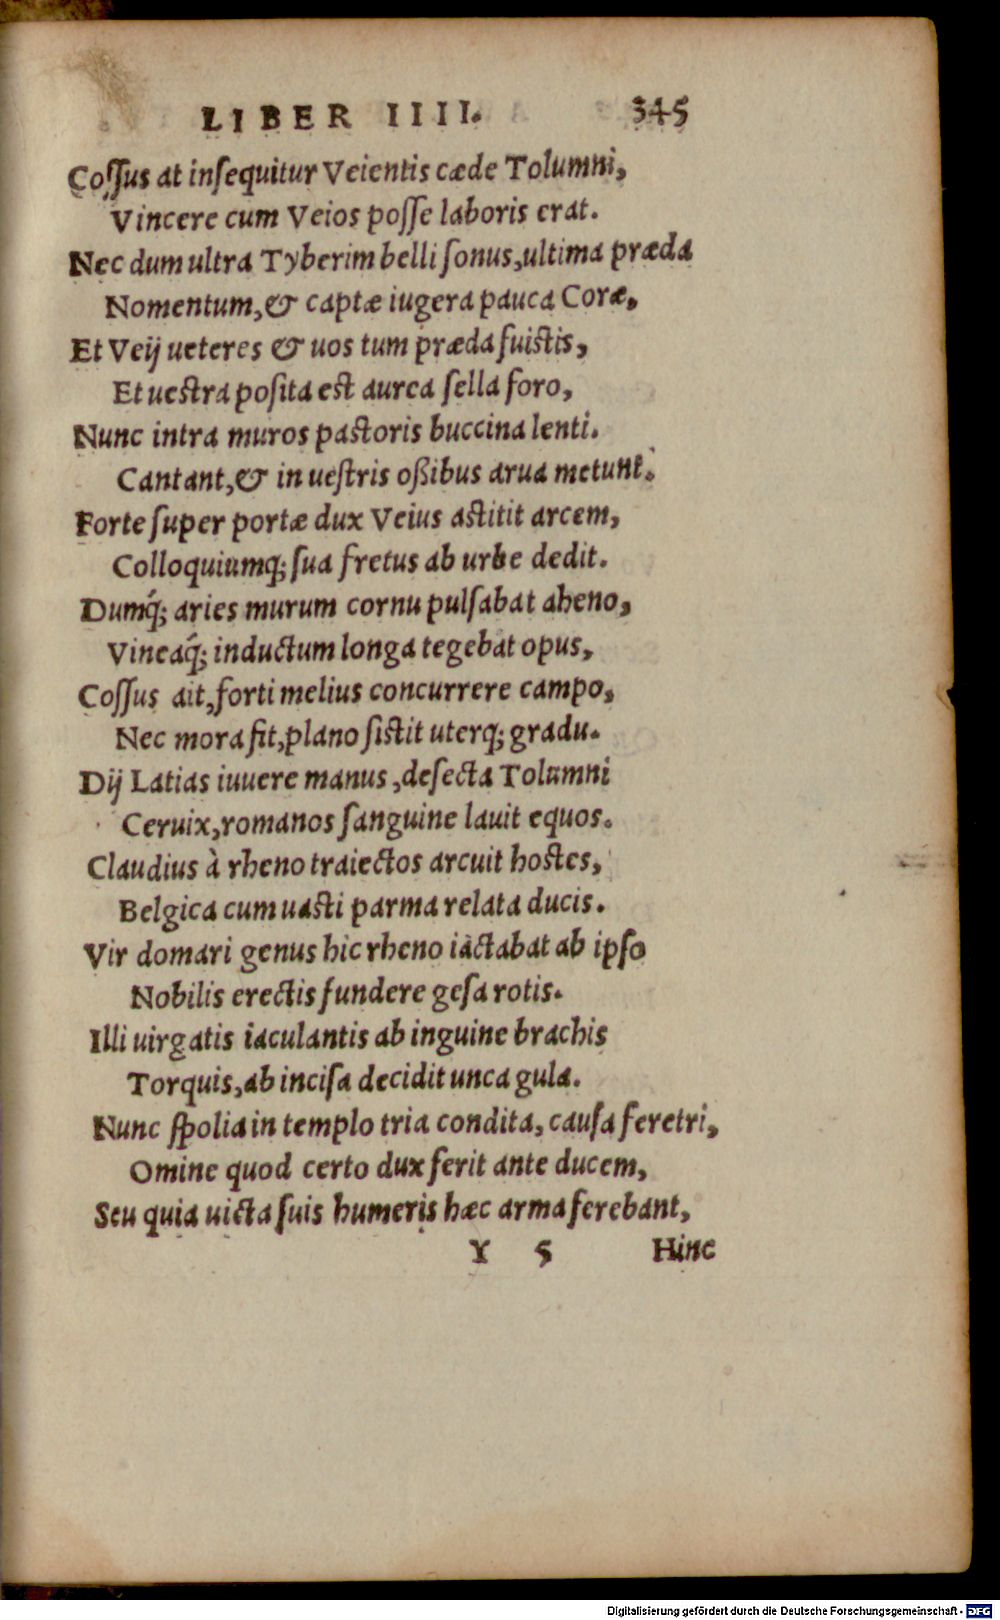 LIBER IIII. 345
Cossus at insequitur Veientis cæde Tolumni,
Vincere cum Veios posse laboris erat.
Nec dum ultra Tyberim belli sonus, ultima præda
Nomentum, & captæ iugera pauca Coræ,
Et Veij ueteres & uos tum præda fuistis,
Et uestra posita est aurea sella foro,
Nunc intra muros pastoris buccina lenti.
Cantant, & in uestris oßibus arua metunt.
Forte super portæ dux Veius astitit arcem,
Colloquiumq; sua fretus ab urbe dedit.
Dumq́; aries murum cornu pulsabat aheno,
Vineaq́; inductum longa tegebat opus,
Cossus ait, forti melius concurrere campo,
Nec mora fit, plano sistit uterq; gradu.
Dij Latias iuuere manus, desecta Tolumni
Ceruix, romanos sanguine lauit equos.
Claudius à rheno traiectos arcuit hostes,
Belgica cum uasti parma relata ducis.
Vir domari genus hic rheno iactabat ab ipso
Nobilis erectis fundere gesa rotis.
Illi uirgatis iaculantis ab inguine brachis
Torquis, ab incisa decidit unca gula.
Nunc spolia in templo tria condita, causa feretri,
Omine quod certo dux ferit ante ducem,
Seu quia uicta suis humeris hæc arma ferebant,
Y 5 Hinc
Digitalisierung gefördert durch die Deutsche Forschungsgemeinschaft - DFG